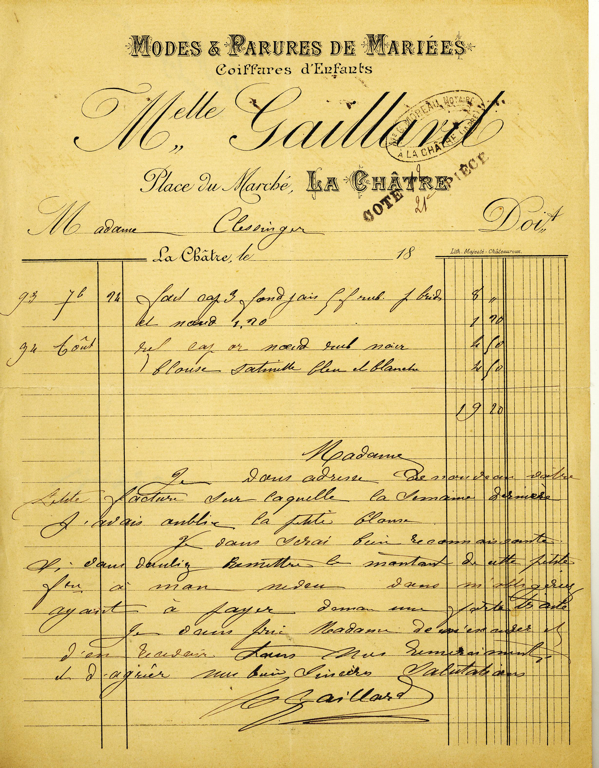 MODES & PARURES DE MARIÉES
Coiffures d'Enfants
Melle Gaillard
Me G. MOREAU, NOTAIRE
A LA CHÂTRE (Indre)
Place du Marché, LA CHÂTRE
COTE 21e PIÈCE
Madame Clessinger Doit
La Châtre, le 18
Lith. Majesté. Châteauroux
93 7b 24 fait cap 3 fond jais 8 "
et nœud 1.20 1 20
94 Août cap or nœud noir 4 50
1 blouse satinette bleu et blanche 4 50
19 20
Madame
Je vous adresse de nouveau votre
petite facture sur laquelle la semaine dernière
j'avais oublié la petite blouse
Je vous serai bien reconnaissante
si vous vouliez remettre le montant de cette petite
à mon neveu vous m'obligeriez
ayant à payer demain une forte traite
Je vous prie Madame de m'excuser et
d'en recevoir tous mes remerciements
et d'agréer mes bien sincères salutations
Gaillard